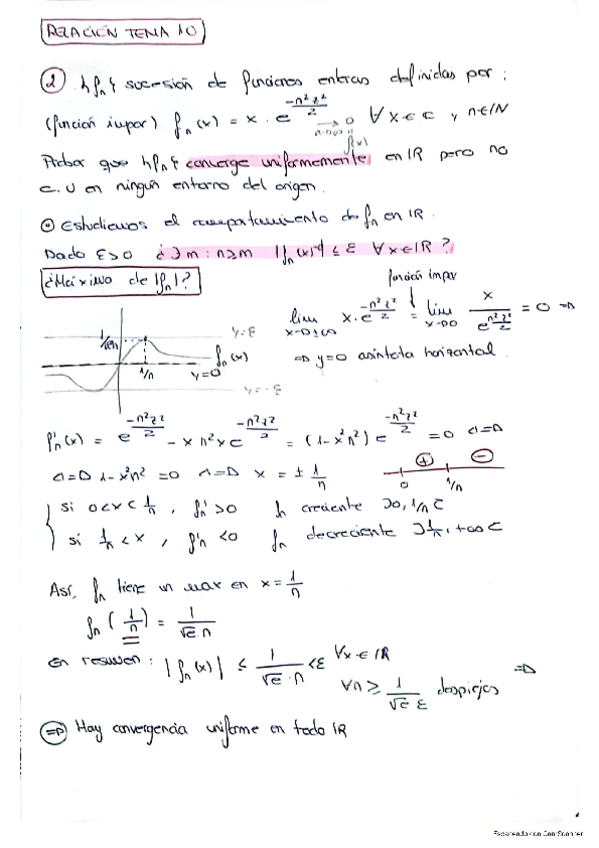 RELACIÓN TEMA 10
② {fₙ} sucesión de funciones enteras definidas por :
(función impar) fₙ(x) = x · e^(-n²z²/2) →(n→∞) 0 ∀x∈ℂ y n∈ℕ
f(x)
Probar que {fₙ} converge uniformemente en ℝ pero no
C.U en ningún entorno del origen.
⊙ Estudiemos el comportamiento de fₙ en ℝ.
Dado ε>0 ¿∃m : n≥m |fₙ(x)| ≤ ε ∀x∈ℝ?
¿Máximo de |fₙ|?
función impar
lim x→±∞ x·e^(-n²z²/2) = lim x→∞ x/e^(n²z²/2) = 0 ⇒
⇒ y=0 asíntota horizontal.
y=ε
fₙ(x)
1/n
y=0
y=-ε
f'ₙ(x) = e^(-n²z²/2) - xn²xe^(-n²z²/2) = (1-x²n²)e^(-n²z²/2) = 0 ⇔
⇔ 1-x²n² = 0 ⇔ x = ± 1/n
+ −
0 1/n
si 0<x<1/n , f'ₙ>0 fₙ creciente ]0, 1/n[
si 1/n < x , f'ₙ <0 fₙ decreciente ]1/n, +∞[
Así, fₙ tiene un max en x = 1/n
fₙ(1/n) = 1/(√e n)
En resumen : |fₙ(x)| ≤ 1/(√e·n) <ε ∀x∈ℝ
∀n ≥ 1/(√e ε) despejas ⇒
⇒ Hay convergencia uniforme en todo ℝ
Escaneado con CamScanner